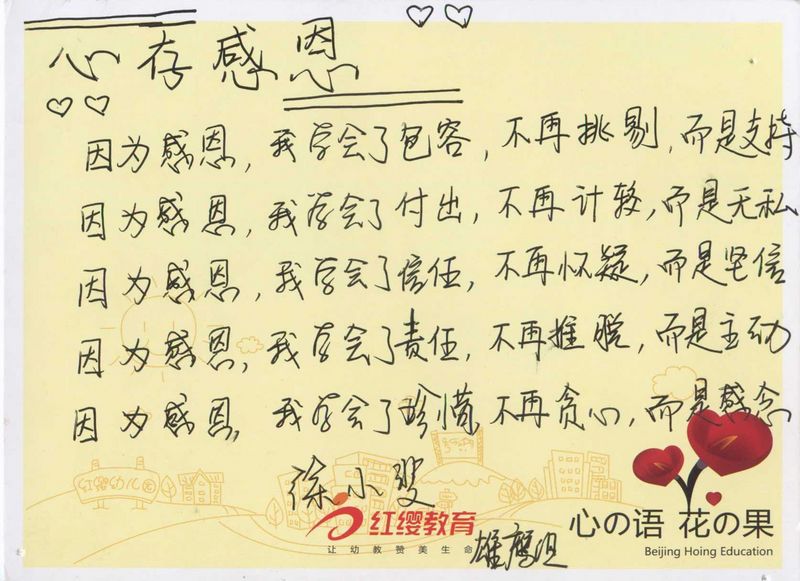 心存感恩
因为感恩,我学会了包容,不再挑剔,而是支持
因为感恩,我学会了付出,不再计较,而是无私
因为感恩,我学会了信任,不再怀疑,而是坚信
因为感恩,我学会了责任,不再推脱,而是主动
因为感恩,我学会了珍惜,不再贪心,而是感念
徐小斐
红缨教育
让幼教赞美生命
雄鹰组
心の语 花の果
Beijing Hoing Education